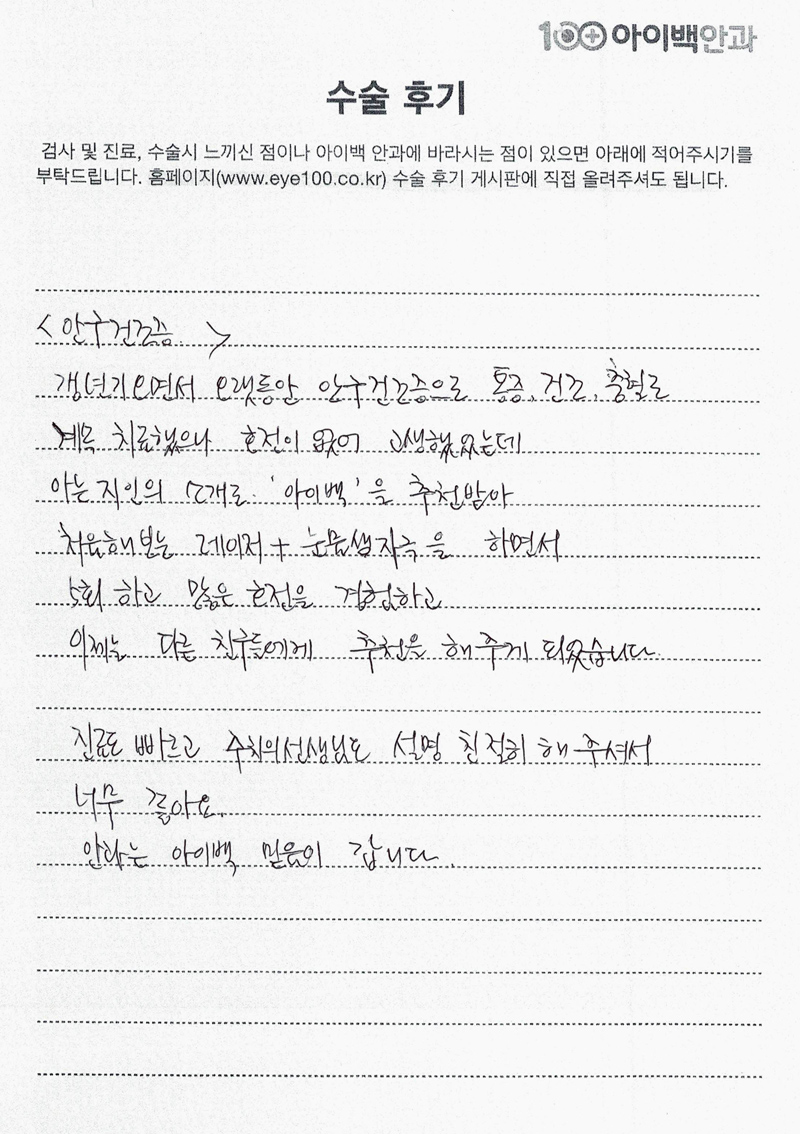 100 아이백안과
수술 후기
검사 및 진료, 수술시 느끼신 점이나 아이백 안과에 바라시는 점이 있으면 아래에 적어주시기를
부탁드립니다. 홈페이지(www.eye100.co.kr) 수술 후기 게시판에 직접 올려주셔도 됩니다.
<안구건조증>
갱년기 오면서 오랫동안 안구건조증으로 통증, 건조, 충혈로
계속 치료했으나 호전이 없어 고생했었는데
아는 지인의 소개로 '아이백'을 추천받아
처음해보는 레이저 + 눈물샘자극을 하면서
5회 하고 많은 호전을 경험하고
이제는 다른 친구들에게 추천을 해 주게 되었습니다.
진료도 빠르고 주치의선생님도 설명 친절히 해 주셔서
너무 좋아요.
안과는 아이백 믿음이 갑니다.